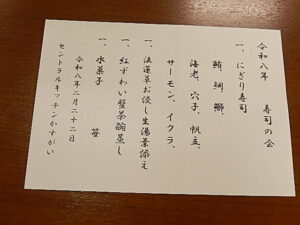 令和八年　寿司の会
一、にぎり寿司
鮪、鯛、鰤、
海老、穴子、帆立、
サーモン、イクラ、
一、法蓮草お浸し生湯葉添え
一、紅ずわい蟹茶碗蒸し
一、水菓子　苺
令和八年二月二十二日
セントラルキッチンかすがい